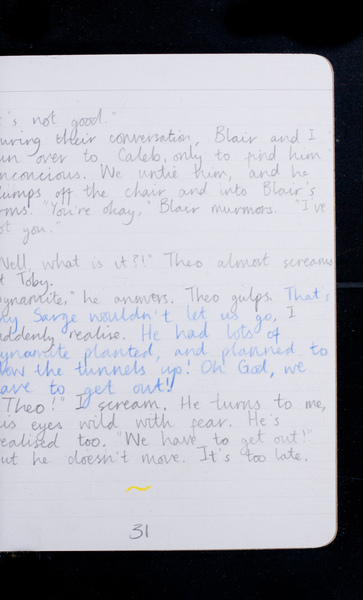 's not good."
uring their conversation, Blair and I
un over to Caleb, only to find him
nconcious. We untie him, and he
lumps off the chair and into Blair's
rms. "You're okay," Blair murmors. "I've
ot you."
Well, what is it?!" Theo almost screams
t Toby.
ynamite," he answers. Theo gulps. That's
hy Sarge wouldn't let us go, I
uddenly realise. He had lots of
ynamite planted, and planned to
low the tunnels up! Oh God, we
ave to get out!
"Theo!" I scream. He turns to me,
is eyes wild with fear. He's
ealised too. "We have to get out!"
ut he doesn't move. It's too late.
~
31